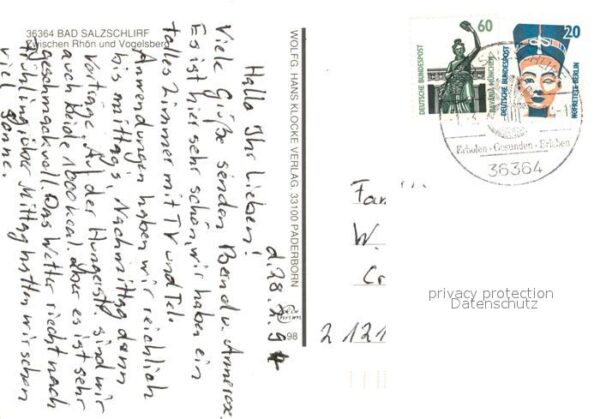 36364 BAD SALZSCHLIRF
Zwischen Rhön und Vogelsberg
WOLFG. HANS KLOCKE VERLAG, 33100 PADERBORN
98
d. 28. 2. 94
Hallo Ihr Lieben!
Viele Grüße senden u. Annerose
Es ist hier sehr schön, wir haben ein
tolles Zimmer mit TV und Tel.
Anwendungen haben wir reichlich
bis mittags, Nachmittag dann
Vorträge. Auf der Hungerst. sind wir
auch Beide 1000 kcal. aber es ist sehr
geschmackvoll. Das Wetter riecht nach
Frühling, über Mittag hatten wir schon
viel Sonne.
60
DEUTSCHE BUNDESPOST
BAVARIA MÜNCHEN
20
DEUTSCHE BUNDESPOST
NOFRETETE BERLIN
Erholen - Gesunden - Erleben
36364
Fam
W.
Cr
privacy protection
Datenschutz
2121